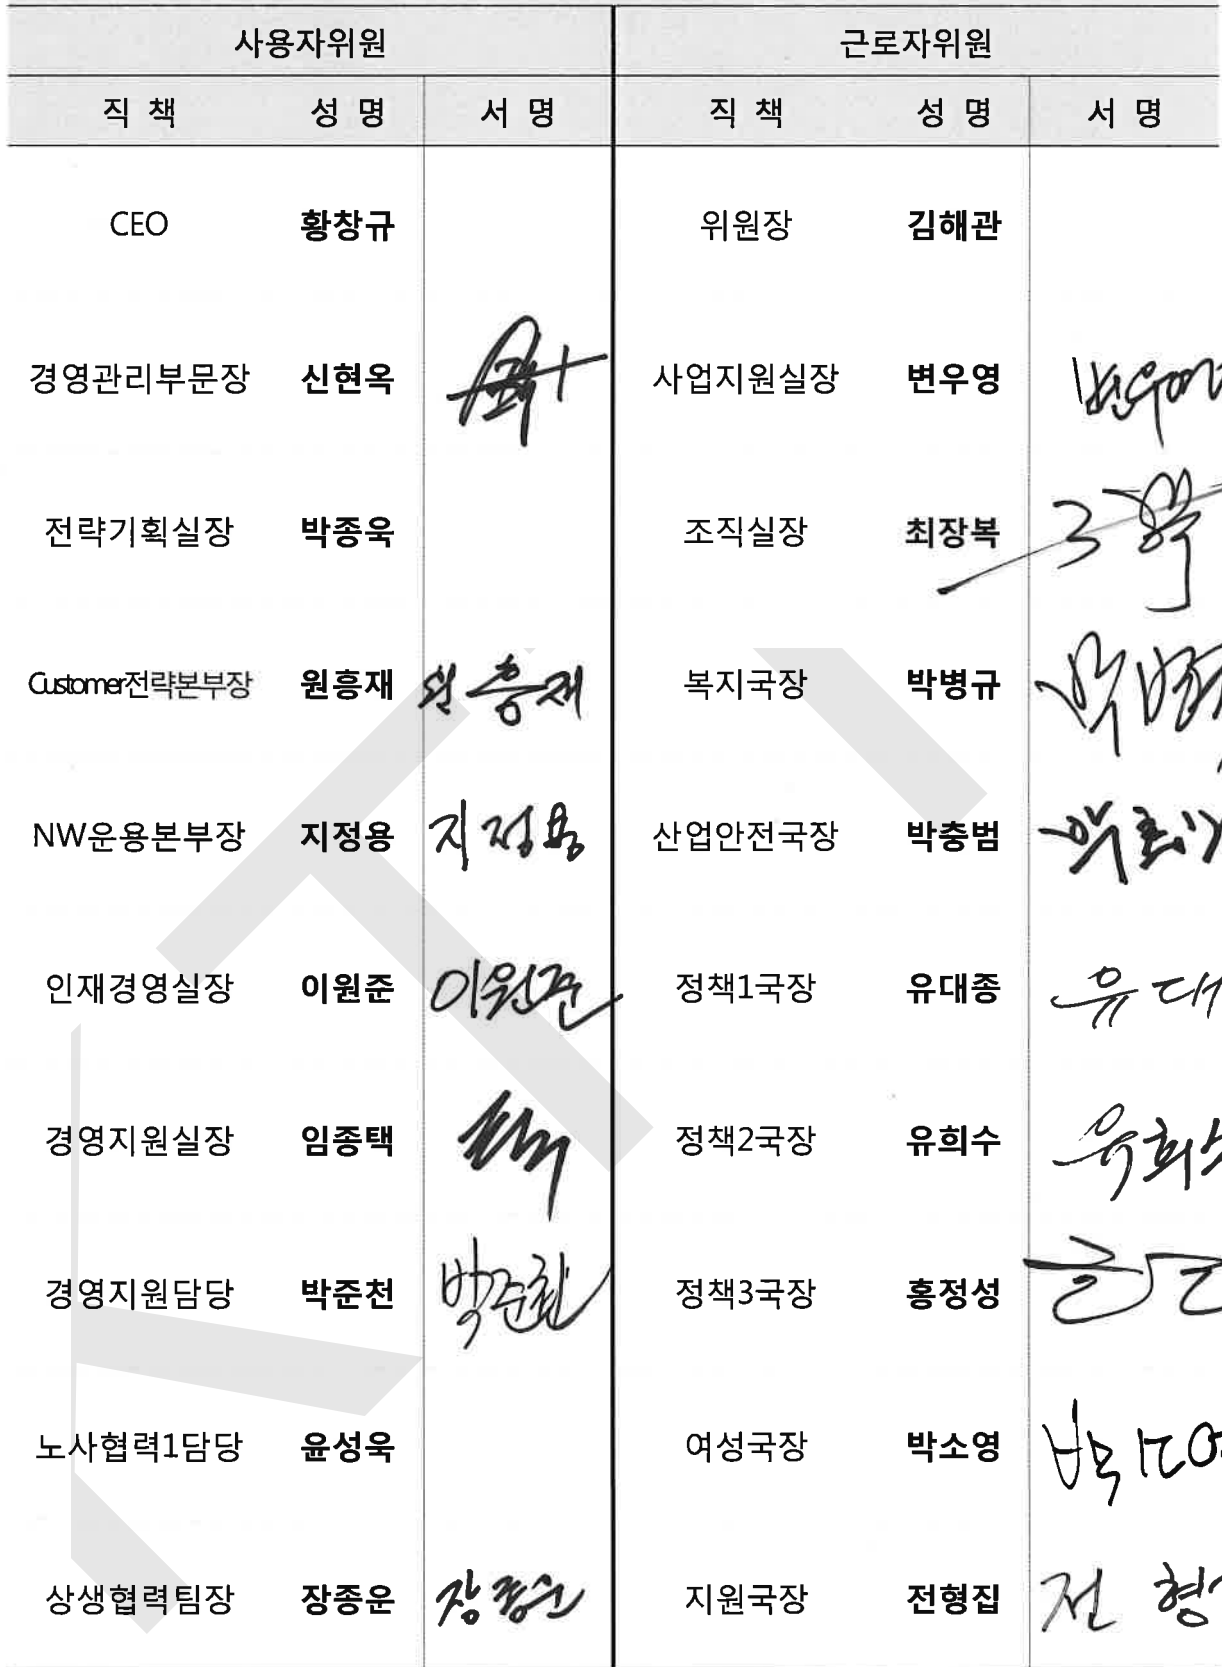 사용자위원 근로자위원
직 책 성 명 서 명 직 책 성 명 서 명
CEO 황창규 위원장 김해관
경영관리부문장 신현옥 사업지원실장 변우영 변우영
전략기획실장 박종욱 조직실장 최장복
Customer전략본부장 원흥재 원흥재 복지국장 박병규 박병규
NW운용본부장 지정용 지정용 산업안전국장 박충범
인재경영실장 이원준 이원준 정책1국장 유대종 유대
경영지원실장 임종택 정책2국장 유희수 유희수
경영지원담당 박준천 박준천 정책3국장 홍정성
노사협력1담당 윤성욱 여성국장 박소영 박소영
상생협력팀장 장종운 장종운 지원국장 전형집 전 형
KT